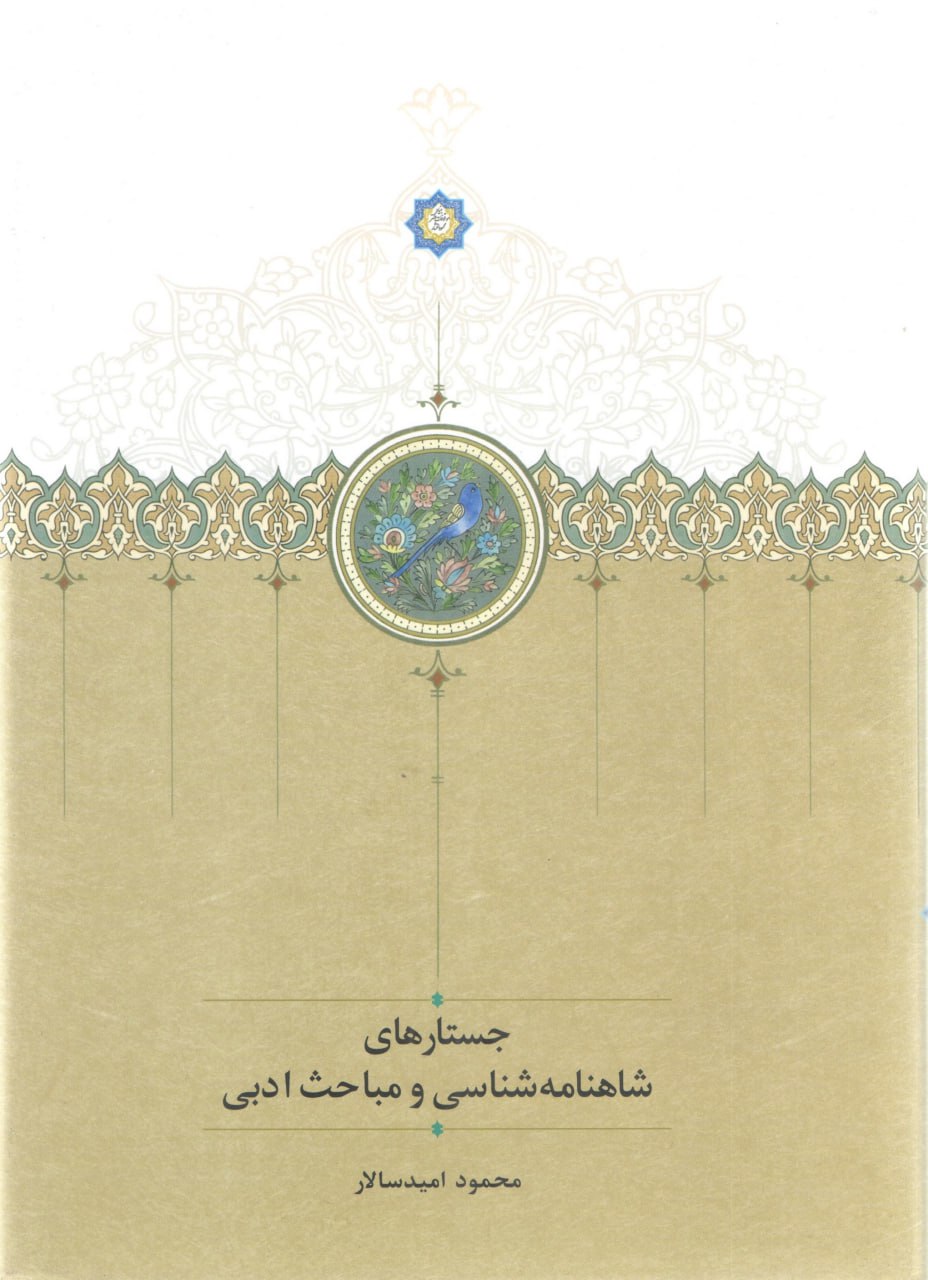 جستارهای
شاهنامه‌شناسی و مباحث ادبی
محمود امیدسالار